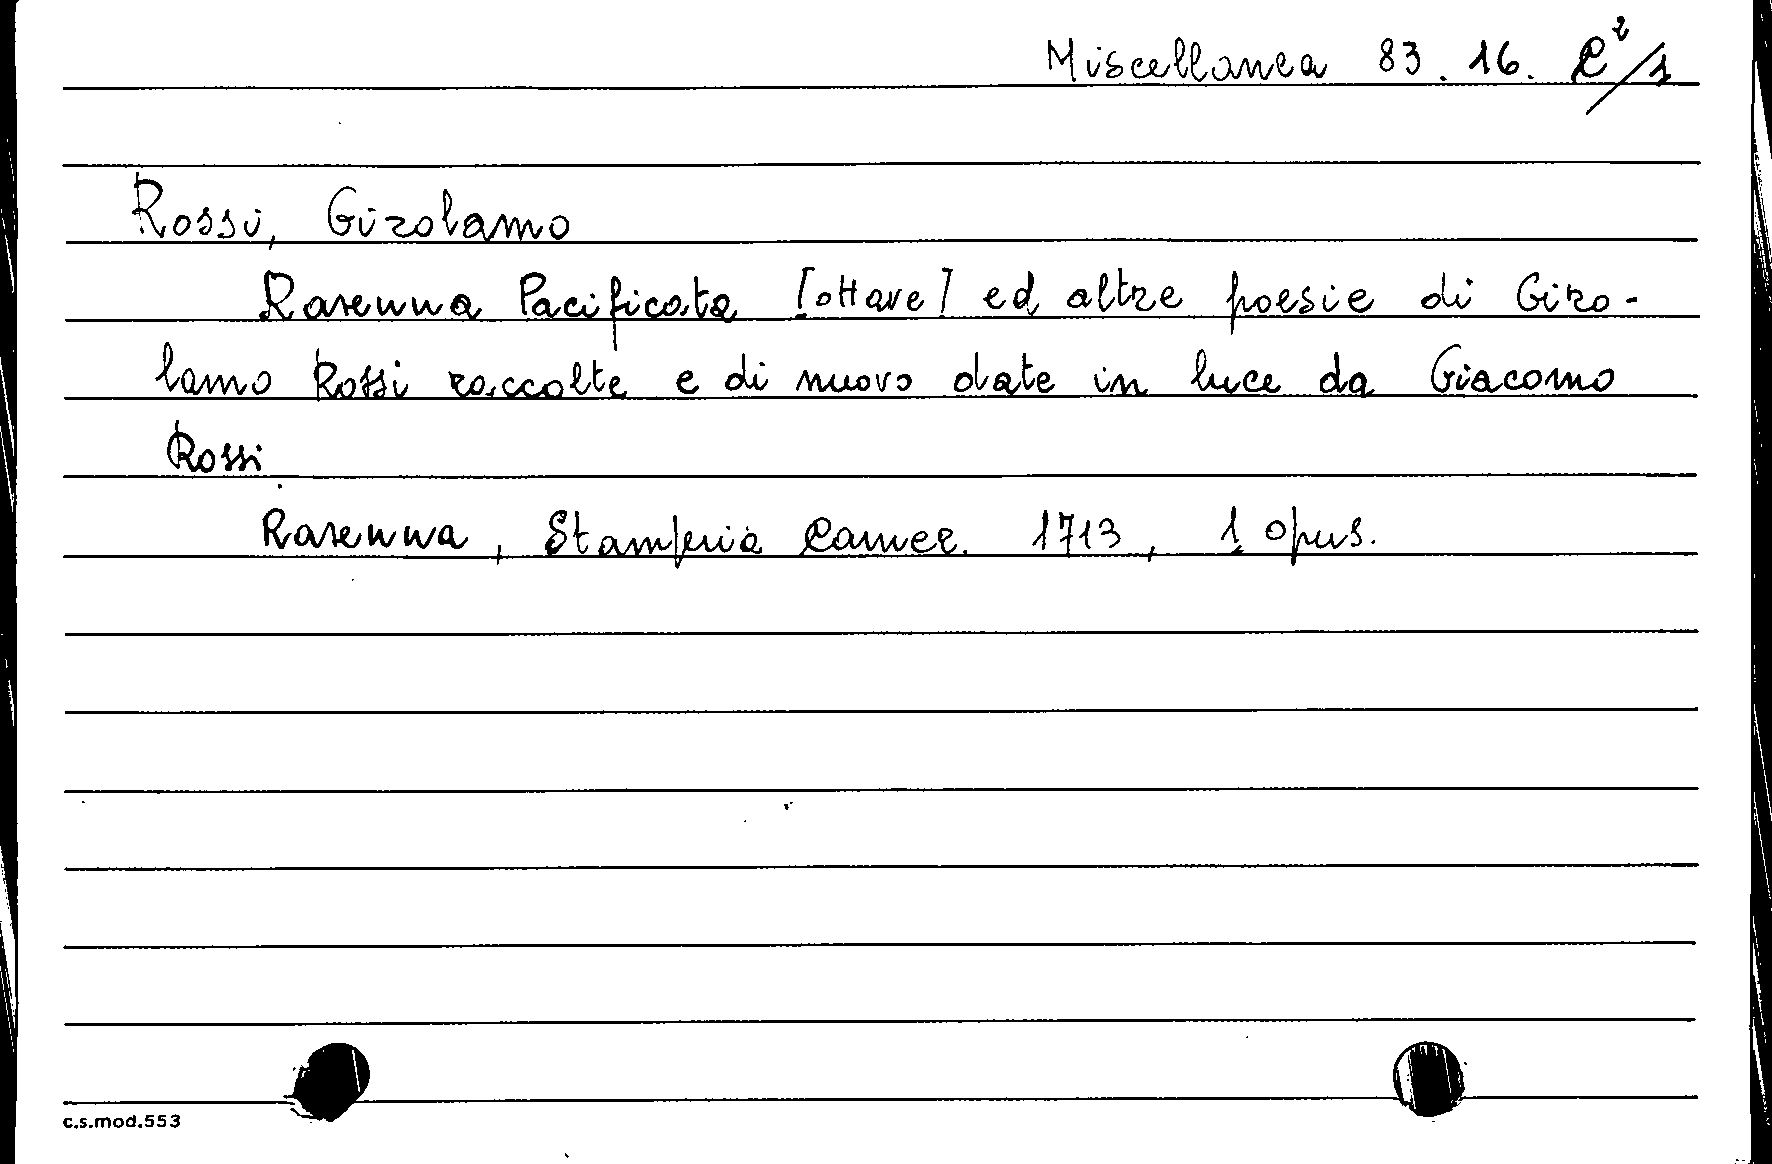 Miscellanea 83. 16. C²/1
Rossi, Girolamo
Ravenna Pacificata [ottave] ed altre poesie di Giro-
lamo Rossi raccolte e di nuovo date in luce da Giacomo
Rossi
Ravenna, Stamperia Camer. 1713, 1 opus.
c.s.mod.553